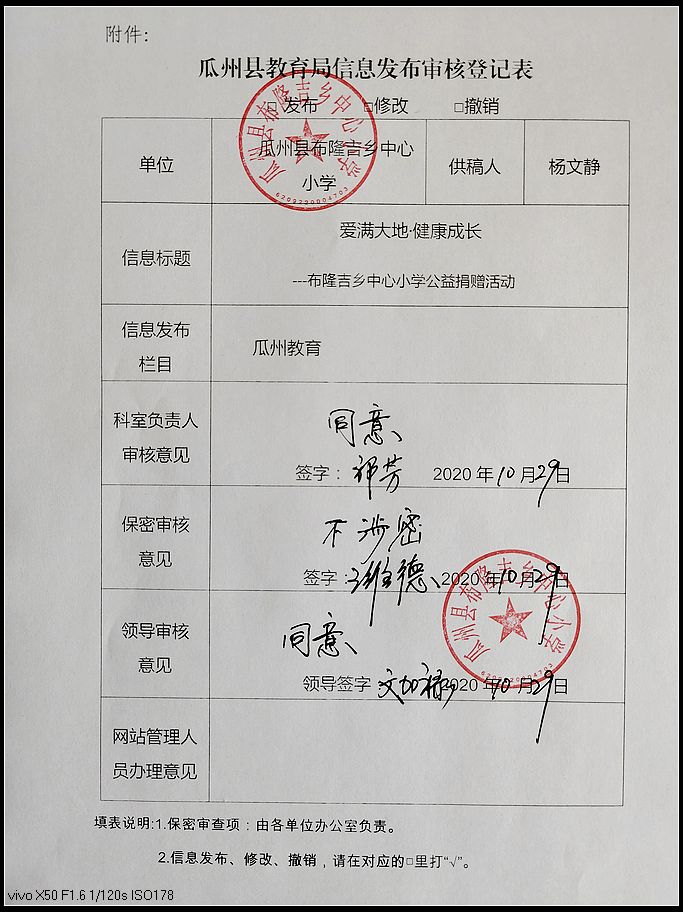 附件:
瓜州县教育局信息发布审核登记表
□ 发布 □修改 □撤销
单位
瓜州县布隆吉乡中心
小学
供稿人
杨文静
瓜州县布隆吉乡中心小学
6209220004703
信息标题
爱满大地·健康成长
---布隆吉乡中心小学公益捐赠活动
信息发布
栏目
瓜州教育
科室负责人
审核意见
同意
签字: 祁芳 2020 年10月29日
保密审核
意见
不涉密
签字: 2020 年10月29日
领导审核
意见
同意
领导签字 2020 年10月29日
瓜州县布隆吉乡中心小学
6209220004703
网站管理人
员办理意见
填表说明:1.保密审查项:由各单位办公室负责。
2.信息发布、修改、撤销，请在对应的□里打“√”。
vivo X50 F1.6 1/120s ISO178